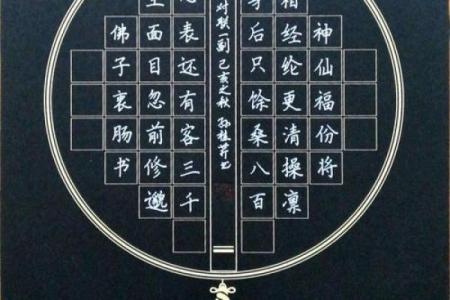 神仙福份将
相经纶更清操凛
后只馀桑八百
对联一副 己亥之秋 孙桂芹书
佛子衷肠书
生面目忽前修邈
表还有客三千